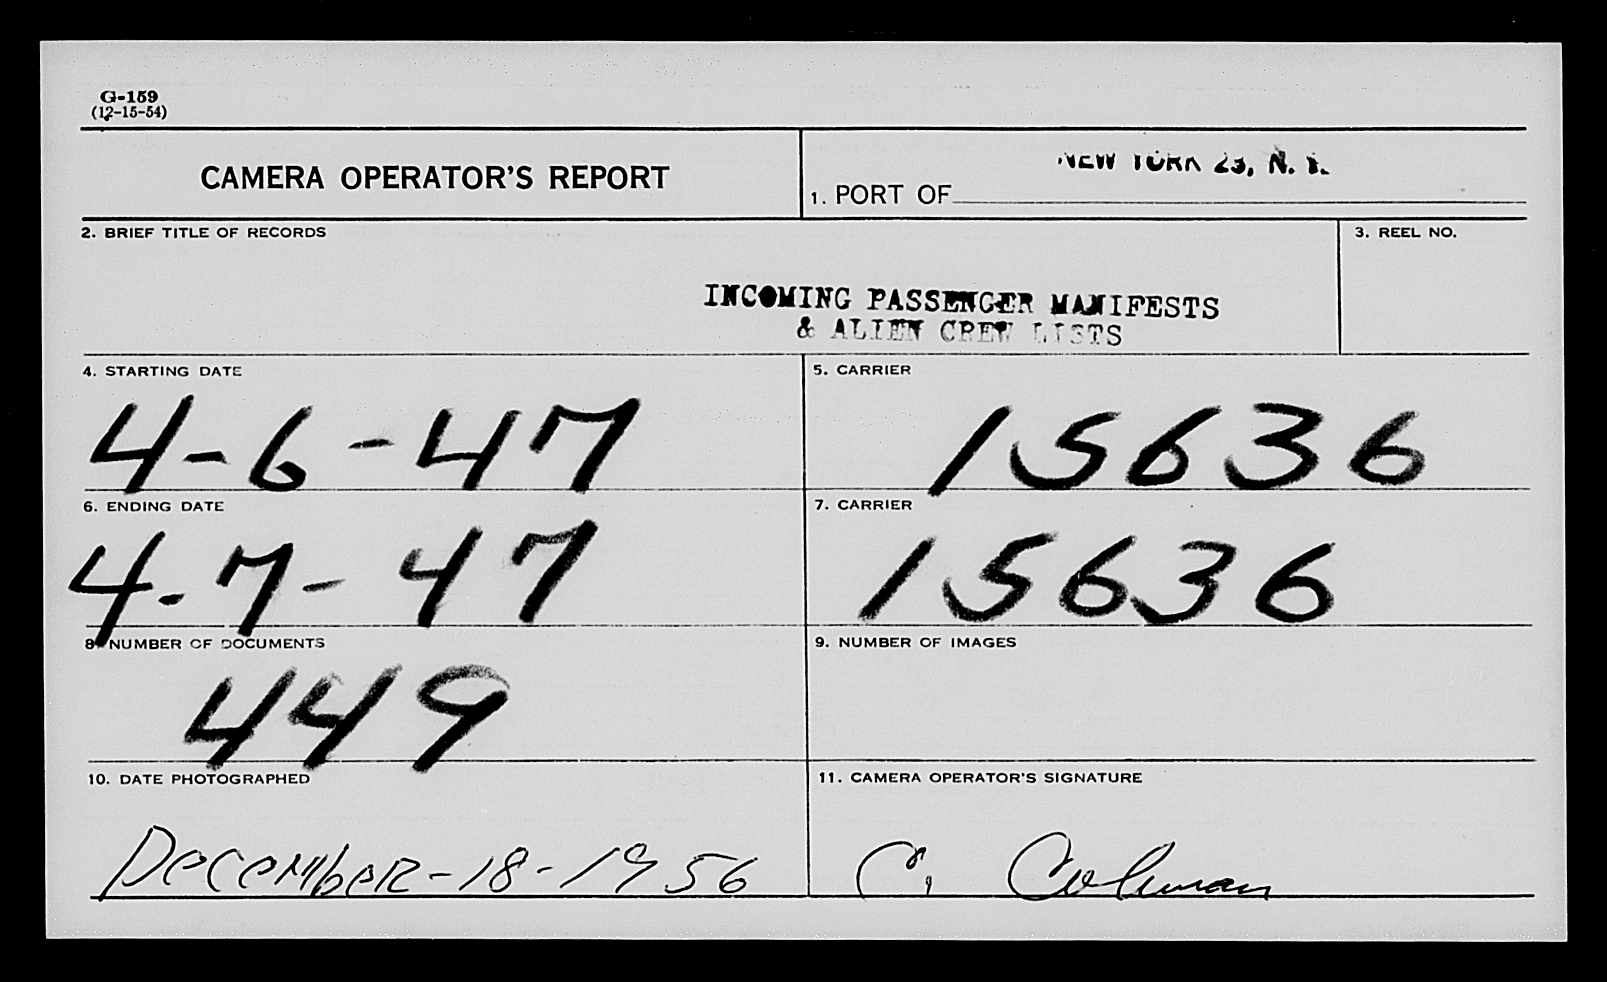 G-159
(12-15-54)
CAMERA OPERATOR'S REPORT
NEW YORK 23, N. Y.
1. PORT OF
2. BRIEF TITLE OF RECORDS
3. REEL NO.
INCOMING PASSENGER MANIFESTS
& ALIEN CREW LISTS
4. STARTING DATE
5. CARRIER
4-6-47
15636
6. ENDING DATE
7. CARRIER
4-7-47
15636
8. NUMBER OF DOCUMENTS
9. NUMBER OF IMAGES
449
10. DATE PHOTOGRAPHED
11. CAMERA OPERATOR'S SIGNATURE
December-18-1956
C. Coleman